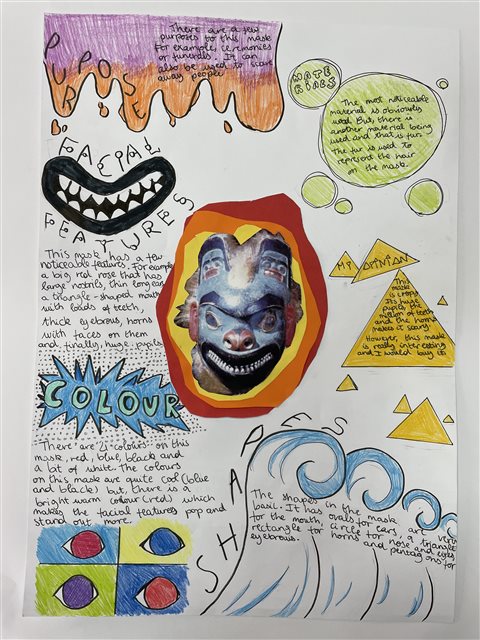 PURPOSE
There are a few
purposes to this mask
For example, ceremonies
or funerals. It can
also be used to scare
away people
MATERIALS
The most noticeable
material is obviously
wood. But, there is
another material being
used and that is fur.
The fur is used to
represent the hair
on the mask.
FACIAL
FEATURES
This mask has a few
noticeable features. For example
a big red nose that has
large nostrils, thin long ears
a triangle-shaped mouth
with loads of teeth,
thick eyebrows, horns
with faces on them
and, finally, huge pupils
MY OPINION
This
mask
is creepy.
Its huge
pupils, the
million of teeth
and the horns
makes it scary!
However, this mask
is really interesting
and I would buy it.
COLOUR
There are 4 colours on this
mask, red, blue, black and
a bit of white. The colours
on this mask are quite cool (blue
and black) but, there is a
bright warm colour (red) which
makes the facial features pop and
stand out more.
SHAPES
The shapes in the mask are very
basic. It has ovals for ears, a triangle
for the mouth, circle for nose and eyes
rectangle for horns and pentagons for
eyebrows.